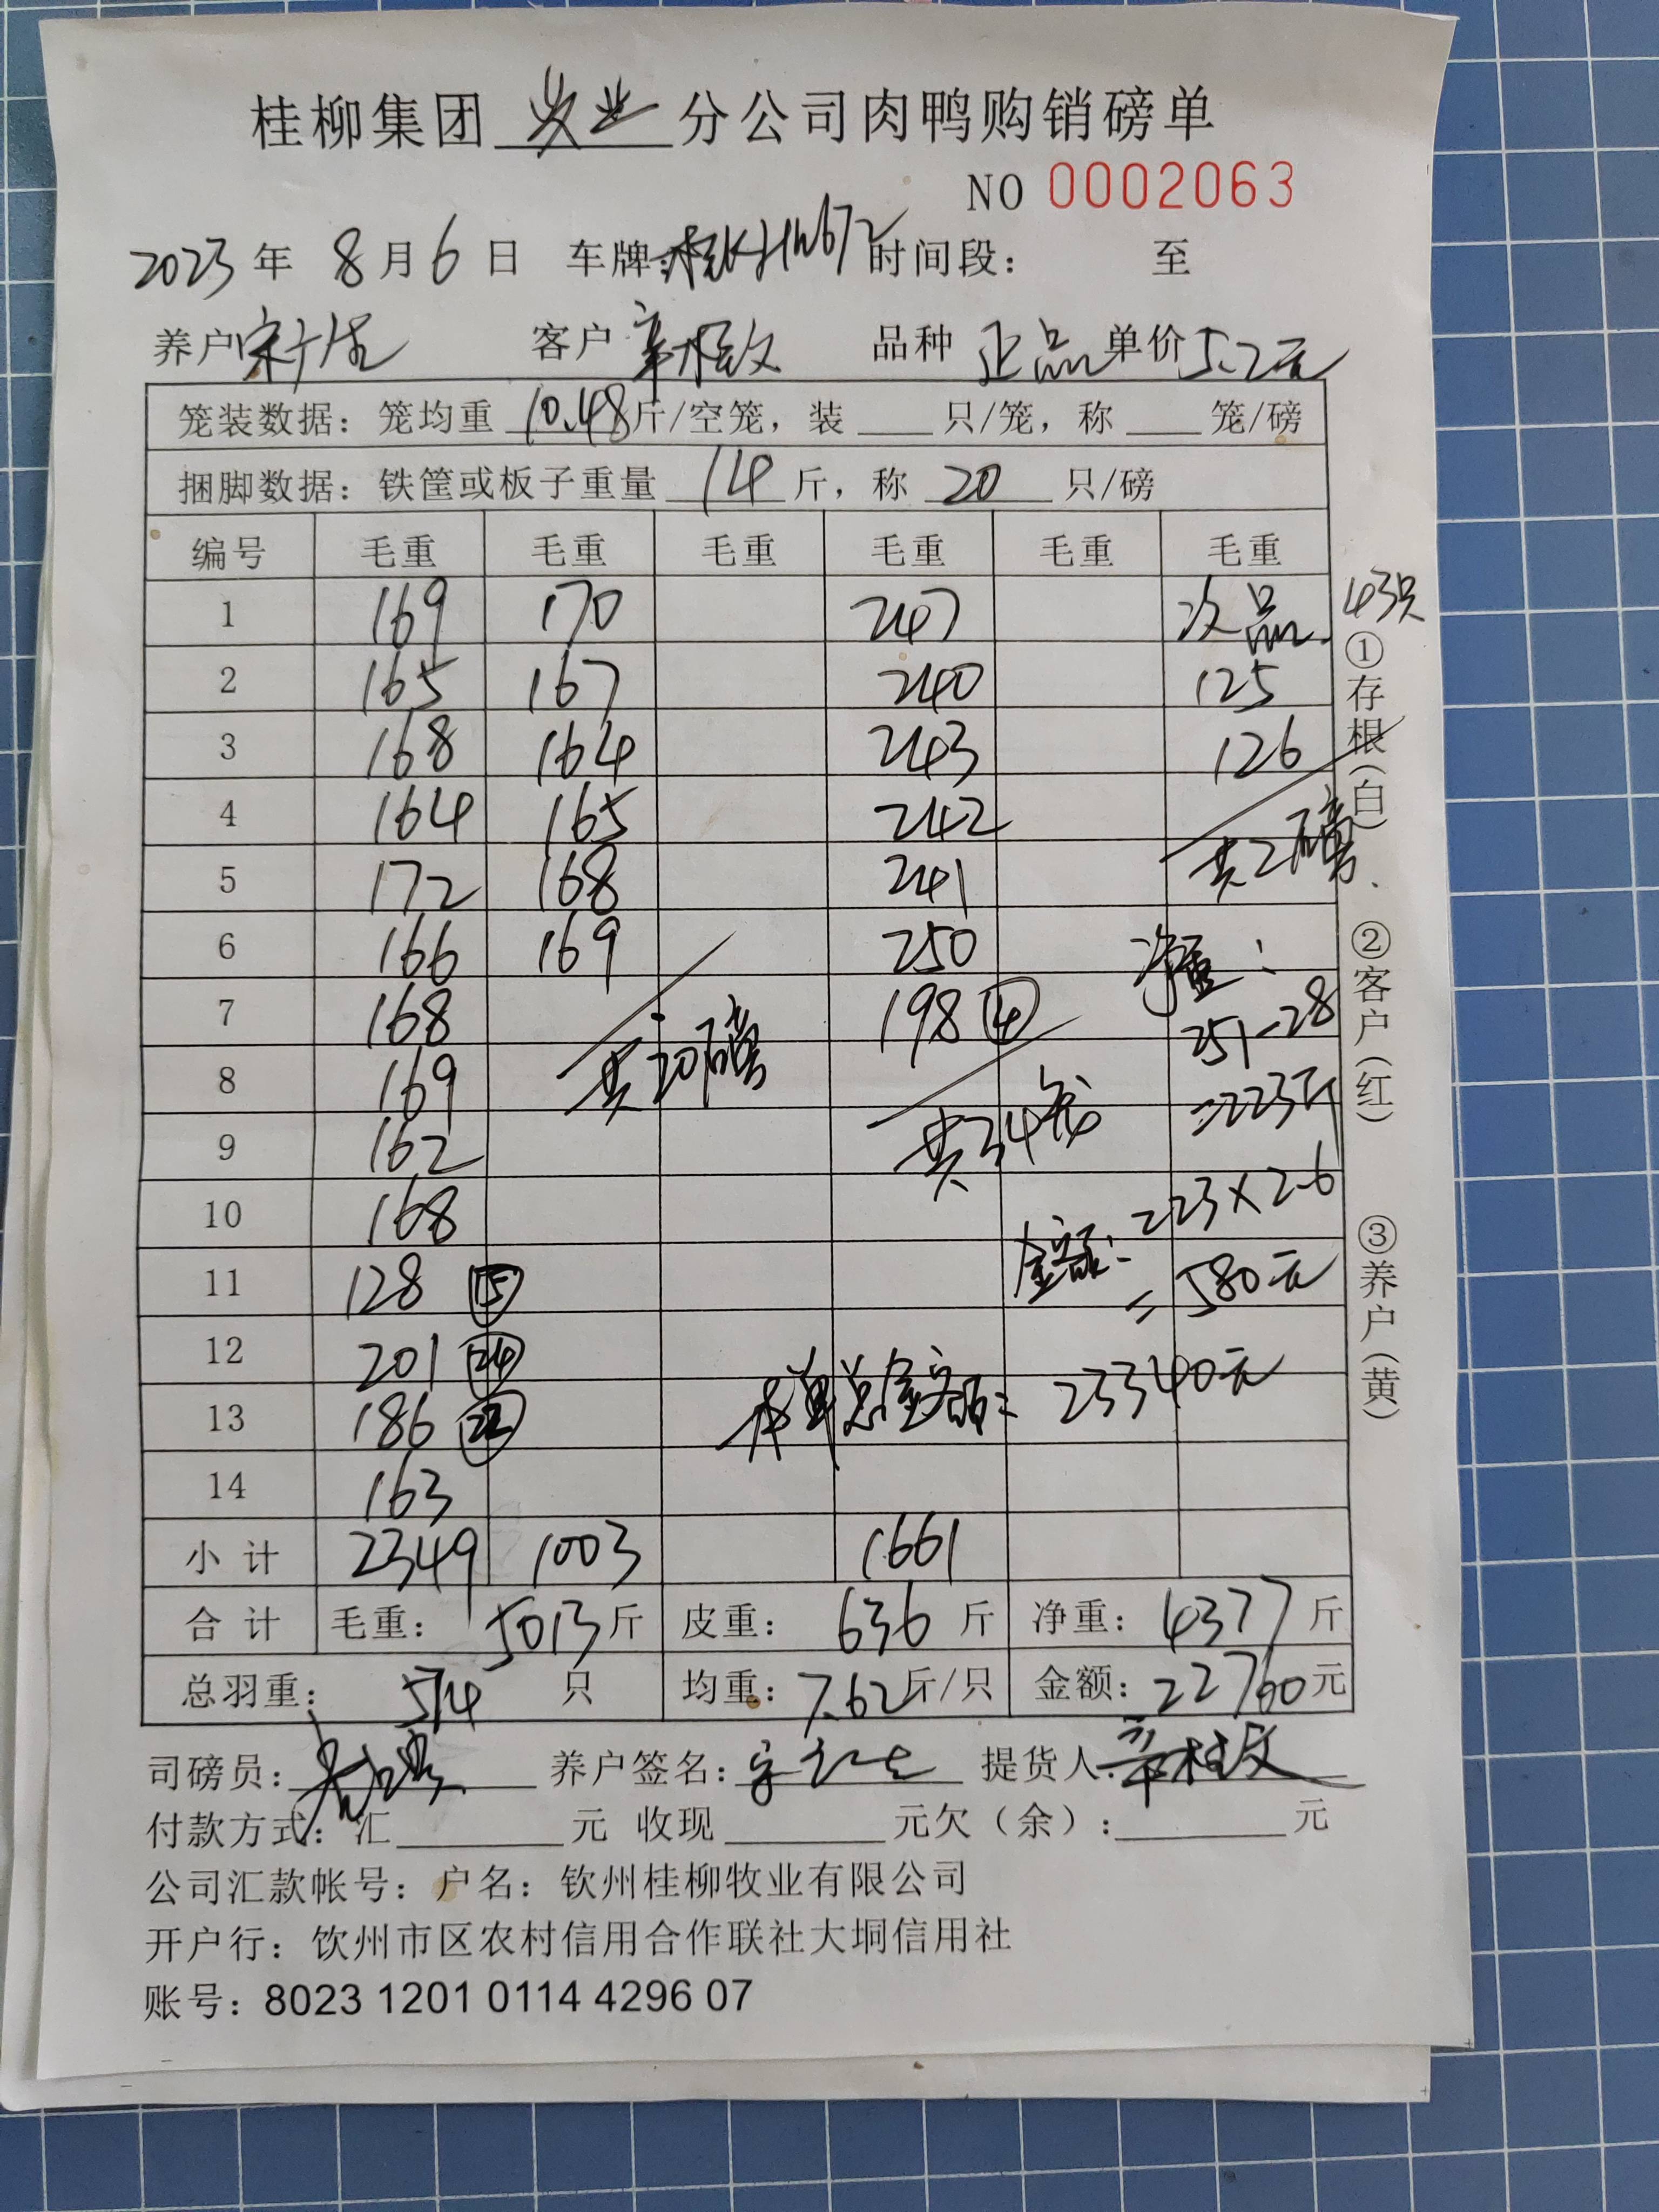 桂柳集团 牧业 分公司肉鸭购销磅单
NO 0002063
2023 年 8 月 6 日 车牌: 时间段: 至
养户 客户 辛桂文 品种 正品 单价 5.2元
笼装数据: 笼均重 10.48 斤/空笼, 装 ___ 只/笼, 称 ___ 笼/磅
捆脚数据: 铁筐或板子重量 14 斤, 称 20 只/磅
编号 毛重 毛重 毛重 毛重 毛重 毛重
1 169 170 247 次品 43只
2 165 167 240 125
3 168 164 243 126
4 164 165 242
5 172 168 241 共2磅
6 166 169 250 净重:
7 168 198 ④ 251-28
8 169 共20磅 =223斤
9 162 共34笼
10 168 金额: 223×2.6
11 128 ⑮ =580元
12 201 ㉔
13 186 ㉒ 本单总金额: 23340元
14 163
小计 2349 1003 1661
合计 毛重: 5013 斤 皮重: 636 斤 净重: 4377 斤
总羽重: 574 只 均重: 7.62 斤/只 金额: 22760 元
司磅员: 养户签名: 提货人: 辛桂文
付款方式: 汇______元 收现______元欠(余):______元
公司汇款帐号: 户名: 钦州桂柳牧业有限公司
开户行: 钦州市区农村信用合作联社大垌信用社
账号: 8023 1201 0114 4296 07
①存根(白)
②客户(红)
③养户(黄)